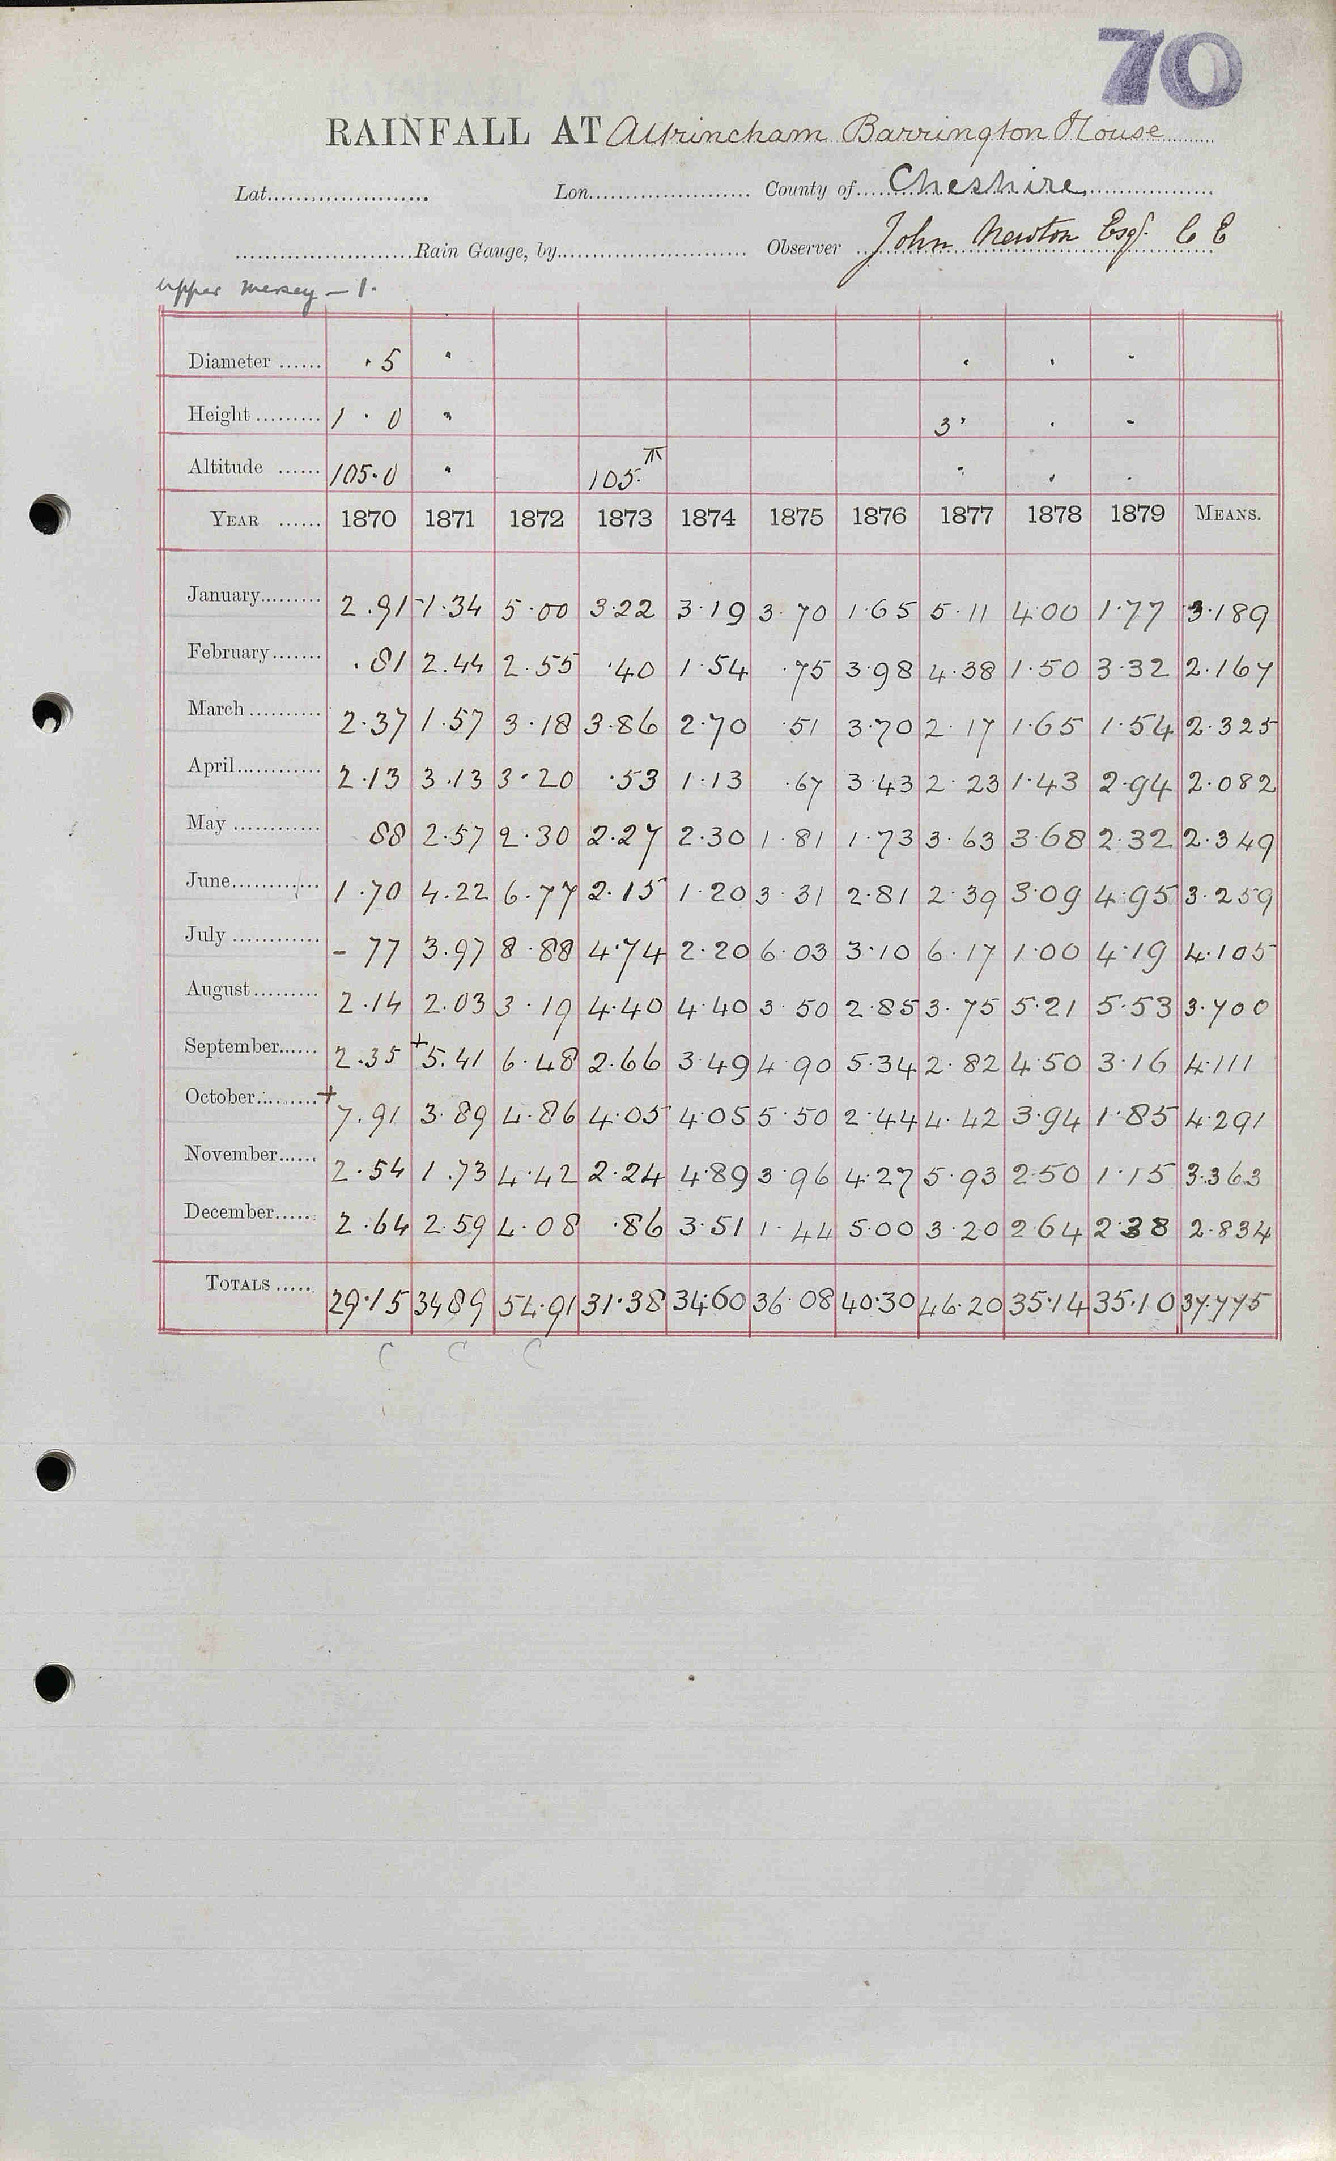 70
RAINFALL AT Altrincham Barrington House
Lat. Lon. County of Cheshire
Rain Gauge, by Observer John Newton Esq. C E
Upper Mersey - 1.
Diameter ...... ·5 " " " "
Height ......... 1 · 0 " 3" " "
Altitude ...... 105·0 " 105· " " "
YEAR ...... 1870 1871 1872 1873 1874 1875 1876 1877 1878 1879 MEANS.
January......... 2.91 1.34 5·00 3·22 3·19 3·70 1·65 5·11 4·00 1·77 3·189
February....... .81 2.44 2·55 ·40 1·54 ·75 3·98 4·38 1·50 3·32 2·167
March .......... 2·37 1·57 3·18 3·86 2·70 51 3·70 2·17 1·65 1·54 2·325
April............ 2·13 3·13 3·20 ·53 1·13 ·67 3·43 2·23 1·43 2·94 2·082
May ............ 88 2·57 2·30 2·27 2·30 1·81 1·73 3·63 3·68 2·32 2·349
June............ 1·70 4·22 6·77 2·15 1·20 3·31 2·81 2·39 3·09 4·95 3·259
July ............ - 77 3·97 8·88 4·74 2·20 6·03 3·10 6·17 1·00 4·19 4·105
August ......... 2·14 2·03 3·19 4·40 4·40 3·50 2·85 3·75 5·21 5·53 3·700
September...... 2·35 +5.41 6·48 2·66 3·49 4·90 5·34 2·82 4·50 3·16 4·111
October......... +7.91 3·89 4·86 4·05 4·05 5·50 2·44 4·42 3·94 1·85 4·291
November...... 2·54 1·73 4·42 2·24 4·89 3·96 4·27 5·93 2·50 1·15 3·363
December...... 2·64 2·59 4·08 ·86 3·51 1·44 5·00 3·20 2·64 2·38 2·834
TOTALS ..... 29·15 34 89 54·91 31·38 34·60 36·08 40·30 46·20 35·14 35·10 37·775
C C C